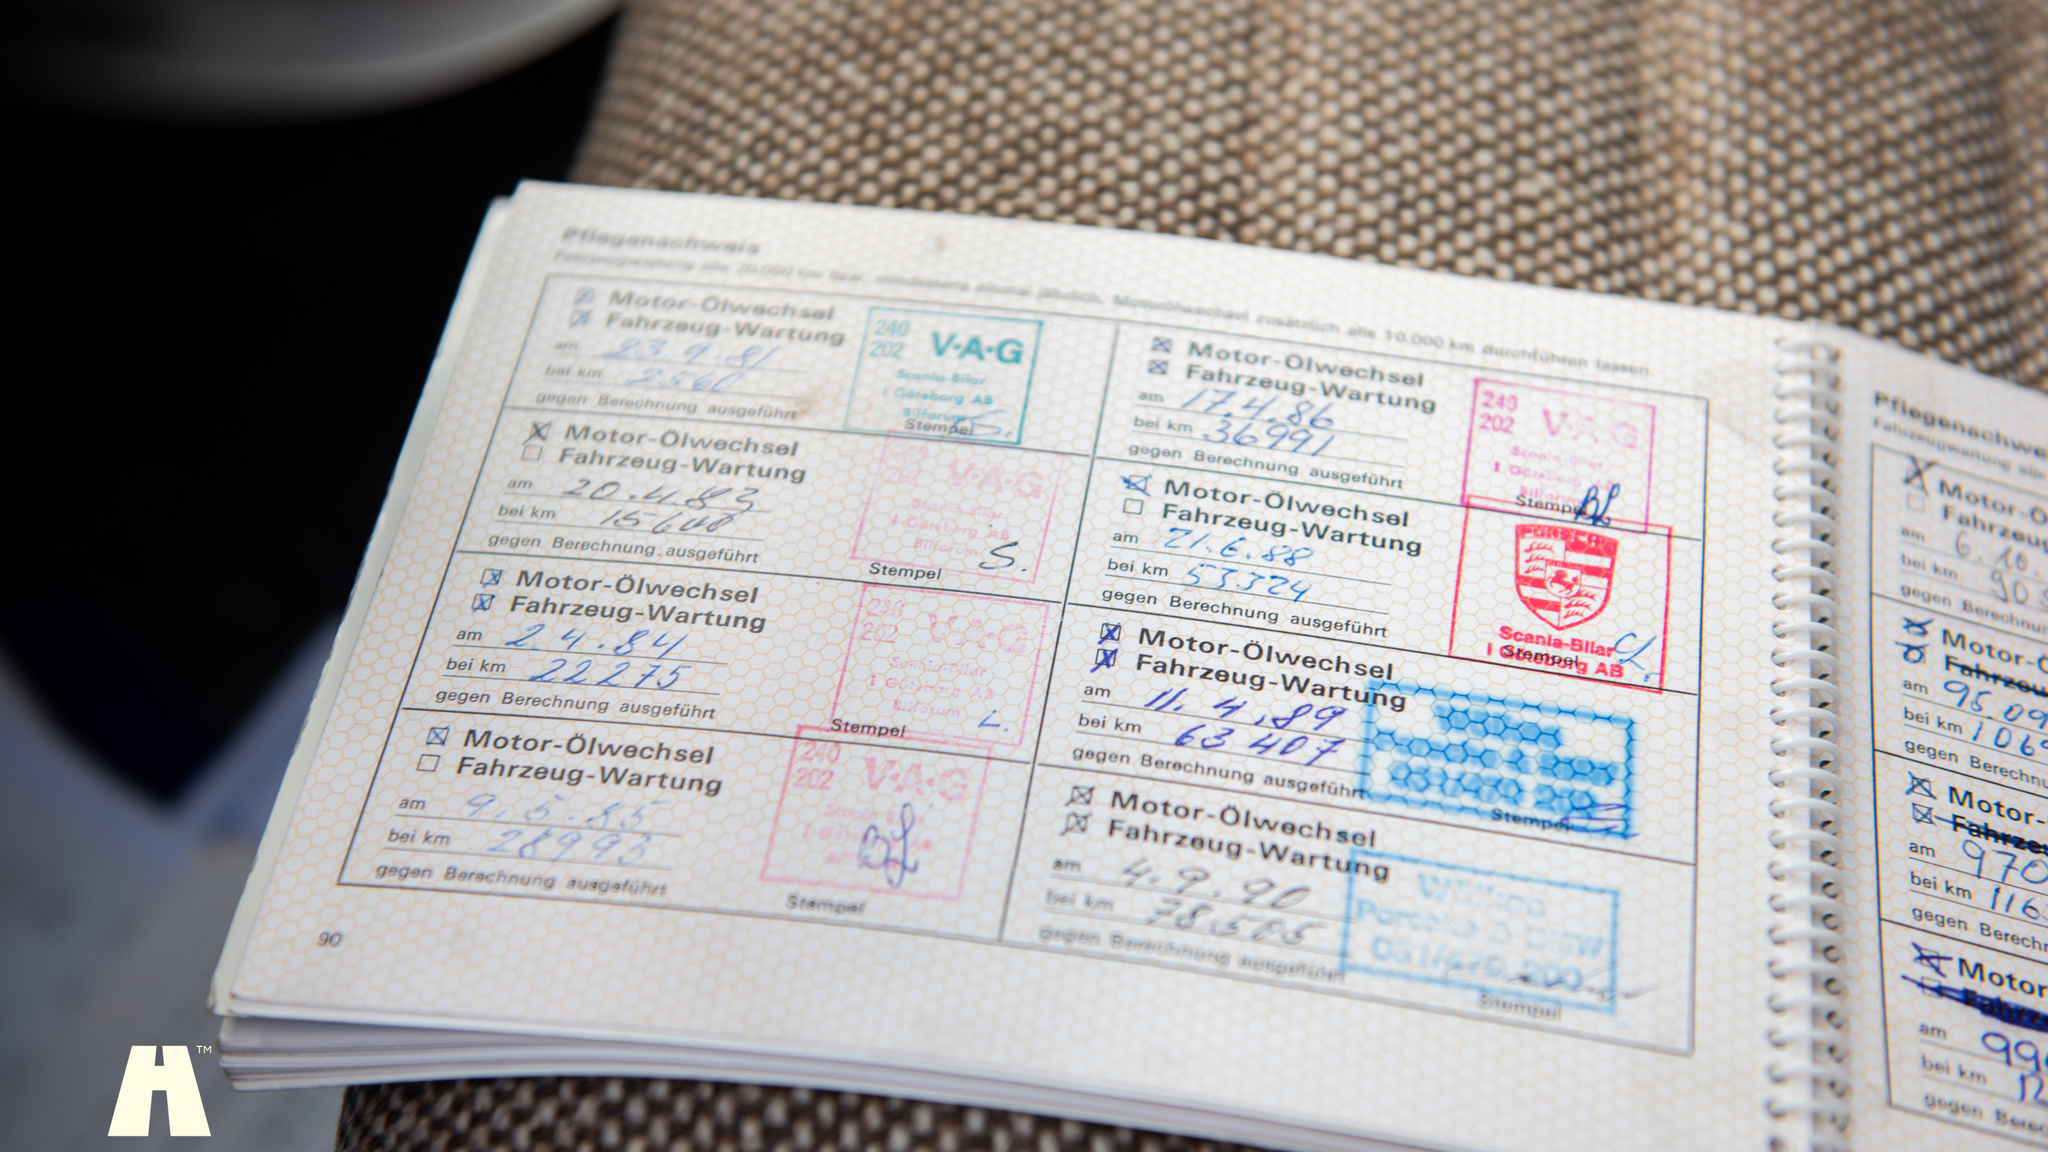 Pflegenachweis
Fahrzeugwartung alle 20.000 km bzw. mindestens einmal jährlich, Motorölwechsel zusätzlich alle 10.000 km durchführen lassen.
Motor-Ölwechsel
Fahrzeug-Wartung
am 23.9.81
bei km 2560
gegen Berechnung ausgeführt
240
202
V·A·G
Scania-Bilar
i Göteborg AB
Bilforum
Stempel S.
Motor-Ölwechsel
Fahrzeug-Wartung
am 20.4.83
bei km 15640
gegen Berechnung ausgeführt
V·A·G
Scania-Bilar
i Göteborg AB
Bilforum
S.
Stempel
Motor-Ölwechsel
Fahrzeug-Wartung
am 2.4.84
bei km 22275
gegen Berechnung ausgeführt
202
V·A·G
Scania-Bilar
i Göteborg AB
Bilforum
L.
Stempel
Motor-Ölwechsel
Fahrzeug-Wartung
am 9.5.85
bei km 28993
gegen Berechnung ausgeführt
240
202
V·A·G
Stempel
Motor-Ölwechsel
Fahrzeug-Wartung
am 17.4.86
bei km 36991
gegen Berechnung ausgeführt
240
202
V·A·G
Scania-Bilar
i Göteborg AB
Bilforum
Stempel
Motor-Ölwechsel
Fahrzeug-Wartung
am 21.6.88
bei km 53324
gegen Berechnung ausgeführt
PORSCHE
Scania-Bilar
i Göteborg AB
Stempel
Motor-Ölwechsel
Fahrzeug-Wartung
am 11.4.89
bei km 63407
gegen Berechnung ausgeführt
Stempel
Motor-Ölwechsel
Fahrzeug-Wartung
am 4.9.90
bei km 78505
gegen Berechnung ausgeführt
031/470 200
Stempel
90
Pflegenachwei
Fahrzeugwartung alle
Motor-Ö
Fahrzeug
am 6.10.
bei km 90
gegen Berechnu
Motor-Ö
Fahrzeu
am 95.09
bei km 106
gegen Berechnu
Motor-
Fahrze
am 970
bei km 116
gegen Berech
Motor
Fahrz
am 99
bei km 12
gegen Bere
H™